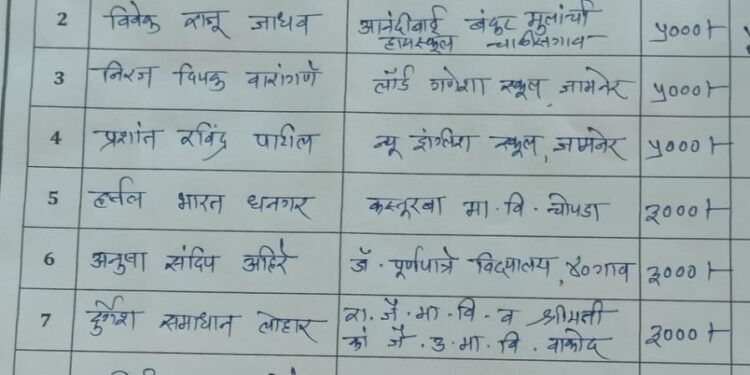 2 विवेक राजू जाधव आनंदीबाई बंकट मुलांची हायस्कूल चाळीसगाव ५०००/-
3 निरज दिपक वारांगणे लॉर्ड गणेशा स्कूल, जामनेर ५०००/-
4 प्रशांत रविंद्र पाटील न्यू इंग्लिश स्कूल, जामनेर ५०००/-
5 हर्षल भारत धनगर कस्तूरबा मा. वि. चोपडा ३०००/-
6 अनुषा संदिप अहिरे डॉ. पूर्णपात्रे विद्यालय, ४०गाव ३०००/-
7 दुर्गेश समाधान लोहार रा. जै. मा. वि. व श्रीमती कां जै. उ. मा. वि. वाकोद ३०००/-